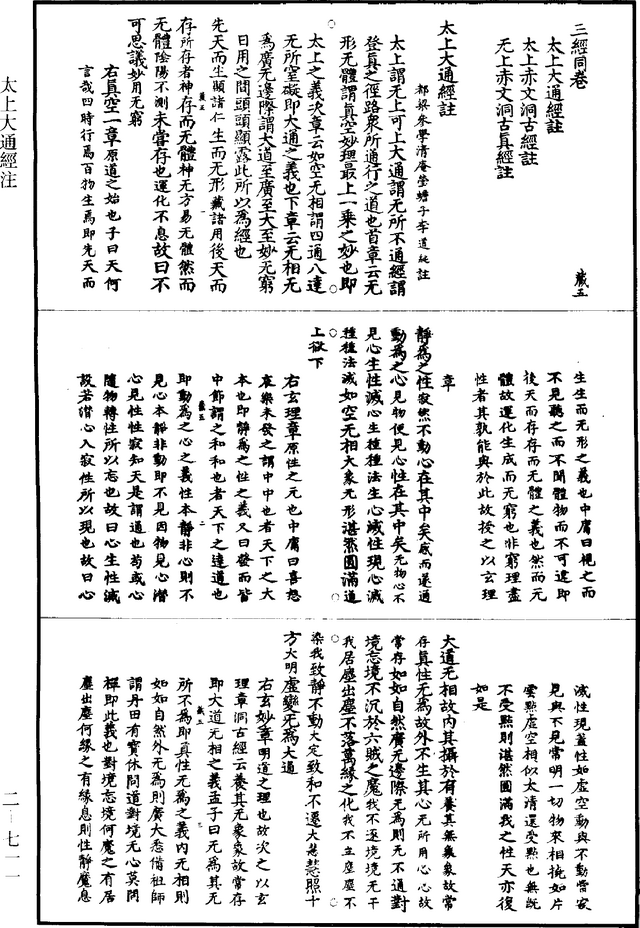 三經同卷
太上大通經註
太上赤文洞古經註
无上赤文洞古真經註
藏五
太上大通經註
都梁參學清庵瑩蟾子李道純註
太上謂无上可上大通謂无所不通經謂
登真之徑路衆所通行之道也首章云无
形无體謂真空妙理最上一乘之妙也即
太上之義次章云如空无相謂四通八達
无所窒礙即大通之義也下章云无相无
為廣无邊際謂大道至廣至大至妙无窮
日用之間頭頭顯露此所以為經也
先天而生顯諸仁生而无形藏諸用後天而
存所存者神存而无體神无方易无體然而
无體陰陽不測未嘗存也運化不息故曰不
可思議妙用无窮
右真空一章原道之始也子曰天何
言哉四時行焉百物生焉即先天而
生生而无形之義也中庸曰視之而
不見聽之而不聞體物而不可遺即
後天而存存而无體之義也然而无
體故運化生成而无窮也非窮理盡
性者其孰能與於此故授之以玄理
章
靜為之性寂然不動心在其中矣感而遂通
動為之心見物便見心性在其中矣无物心不
見心生性滅心生種種法生心滅性現心滅
種種法滅如空无相大象无形湛然圓滿道
上欲下
右玄理章原性之元也中庸曰喜怒
哀樂未發之謂中中也者天下之大
本也即靜為之性之義又曰發而皆
中節謂之和和也者天下之達道也
即動為之心之義性本靜非心則不
見心本靜非動即不見因物見心潛
心見性性寂知天是謂道也苟或心
隨物轉性所以忘也故曰心生性滅
設若潛心入寂性所以現也故曰心
滅性現蓋性如虛空動與不動當家
見與不見常明一切物來相掩如片
雲點虛空相似太清還受點也無既
不受點則湛然圓滿我之性天亦復
如是
大道无相故內其攝於有養其無象象故常
存真性无為故外不生其心无所用心心故
常存如如自然廣无邊際无為則无不通對
境忘境不沉於六賊之魔我不逐境境无干
我居塵出塵不落萬緣之化我不立塵塵不
染我致靜不動大定致和不遷大慧慧照十
方大明虛變无為大通
右玄妙章明道之理也故次之以玄
理章洞古經云養其无象象故常存
即大道无相之義孟子曰无為其无
所不為即真性无為之義內无相則
如如自然外无為則廣大悉備祖師
謂丹田有寶休問道對境无心莫問
禪即此義也對境忘境何魔之有居
塵出塵何緣之有緣息則性靜魔息
太上大通經注
二—七一一